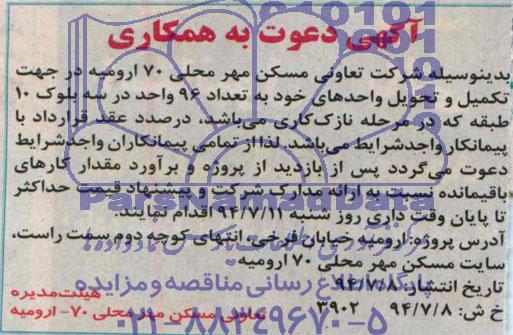 آگهی دعوت به همکاری
بدینوسیله شرکت تعاونی مسکن مهر محلی ۷۰ ارومیه در جهت
تکمیل و تحویل واحدهای خود به تعداد ۹۶ واحد در سه بلوک ۱۰
طبقه که در مرحله نازک‌کاری می‌باشد، درصدد عقد قرارداد با
پیمانکار واجدشرایط می‌باشد. لذا از تمامی پیمانکاران واجدشرایط
دعوت می‌گردد پس از بازدید از پروژه و برآورد مقدار کارهای
باقیمانده نسبت به ارائه مدارک شرکت و پیشنهاد قیمت حداکثر
تا پایان وقت داری روز شنبه ۹۴/۷/۱۱ اقدام نمایند.
آدرس پروژه: ارومیه خیابان فرخی، انتهای کوچه دوم سمت راست،
سایت مسکن مهر محلی ۷۰ ارومیه
تاریخ انتشار: ۹۴/۷/۸
خ ش: ۹۴/۷/۸ ۳۹۰۲
هیئت‌مدیره
تعاونی مسکن مهر محلی ۷۰- ارومیه
ParsNamadData
پایگاه اطلاع رسانی مناقصه و مزایده
۰۲۱-۸۸۳۴۹۶۷۰-۵